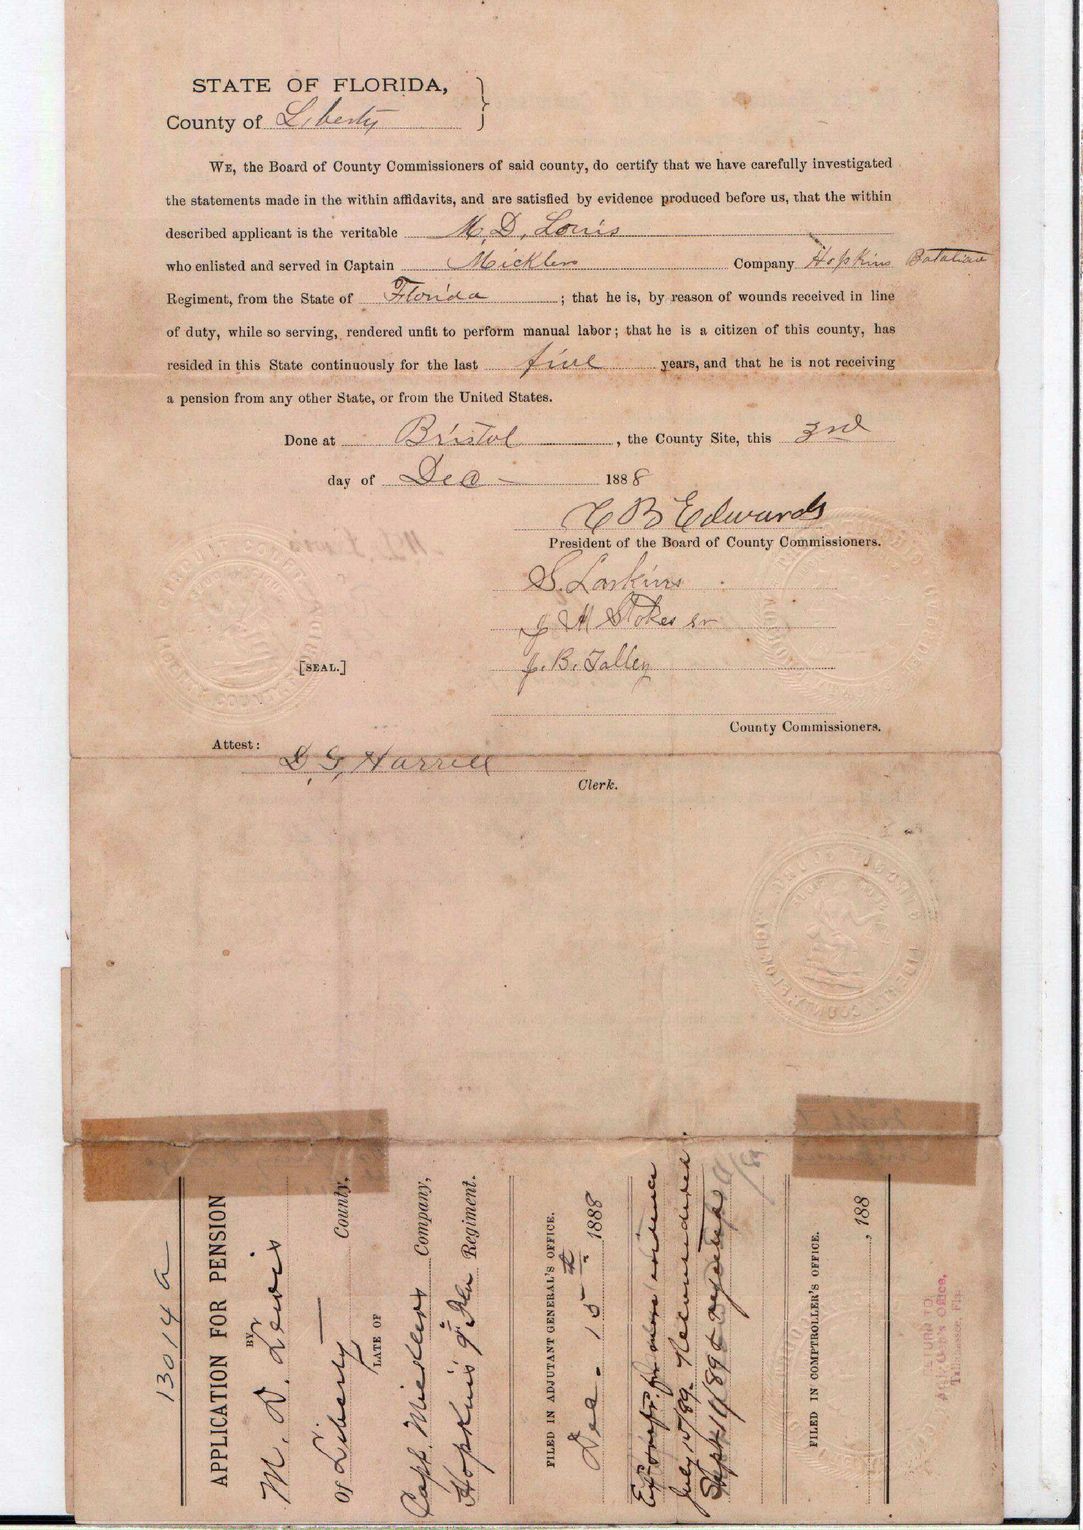 STATE OF FLORIDA,
County of Liberty
WE, the Board of County Commissioners of said county, do certify that we have carefully investigated
the statements made in the within affidavits, and are satisfied by evidence produced before us, that the within
described applicant is the veritable M. D. Louis
who enlisted and served in Captain Micklers Company Hopkins Batalian
Regiment, from the State of Florida ; that he is, by reason of wounds received in line
of duty, while so serving, rendered unfit to perform manual labor; that he is a citizen of this county, has
resided in this State continuously for the last five years, and that he is not receiving
a pension from any other State, or from the United States.
Done at Bristol , the County Site, this 3rd
day of Dec 1888
C B Edwards
President of the Board of County Commissioners.
S. Larkins
J. H Stokes sr
J. B. Talley
[SEAL.]
County Commissioners.
Attest:
D. G. Harrell
Clerk.
13014 a
APPLICATION FOR PENSION
BY
M. D. Lewis
Of Liberty County,
LATE OF
Capt. Micklers Company,
Hopkins Regiment.
FILED IN ADJUTANT GENERAL'S OFFICE.
Dec. 15th 1888
for more evidence
July 15/89. Recommended
Sept 14/89
FILED IN COMPTROLLER'S OFFICE.
, 188
RETURN TO
Office,
Tallahassee, Fla.